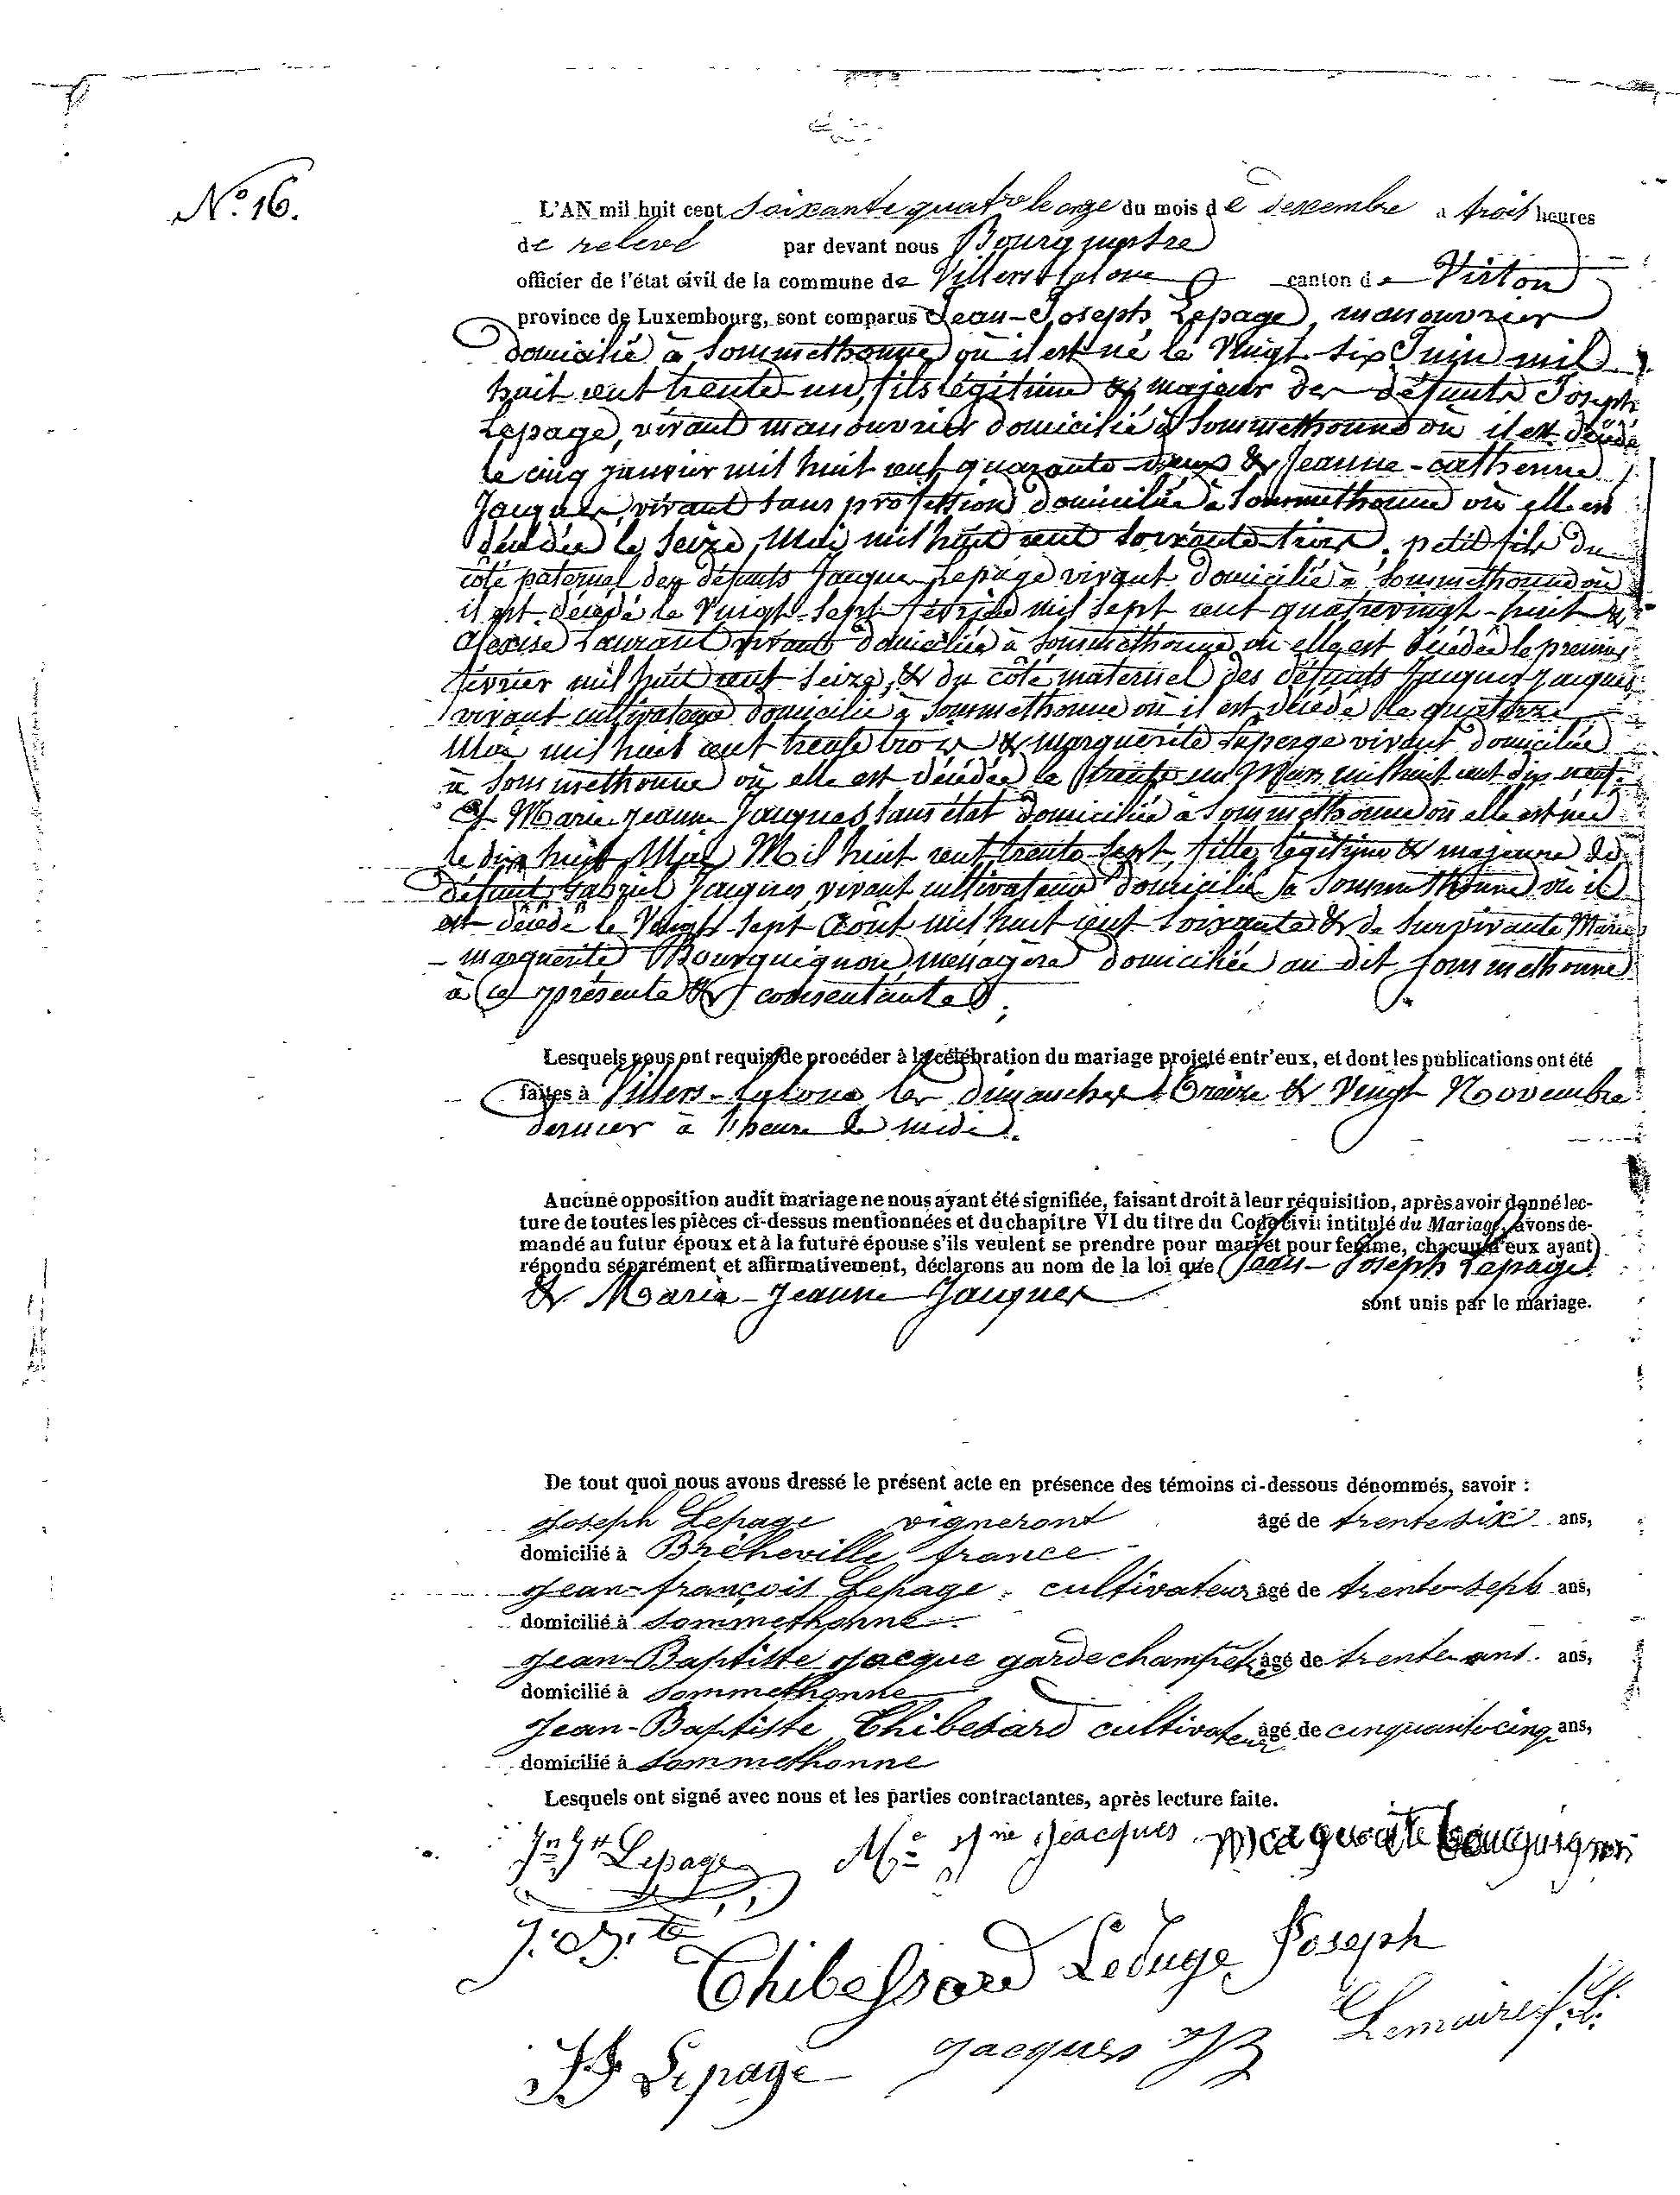 N.° 16.
L'AN mil huit cent Soixante quatre le onze du mois de Dessembre a trois heures
de relevé par devant nous Bourgmestre
officier de l'état civil de la commune de Villers-la-loue canton de Virton
province de Luxembourg, sont comparus Jean-Joseph Lepage, manouvrier
domicilié à Sommethonne où il est né le Vingt-six Juin mil
huit cent trente-un, fils légitime & majeur des défunts Joseph
Lepage, vivant manouvrier domicilié à Sommethonne où il est décédé
le cinq janvier mil huit cent quarante-deux & Jeanne-catherine
Jacques, vivant sans profession domiciliée à Sommethonne où elle est
décédée le seize Mai mil huit cent soixante-trois. petit fils du
côté paternel des défunts Jacques Lepage vivant domicilié à Sommethonne où
il est décédé le Vingt-sept février mil sept cent quatrevingt-huit &
Laurant vivant domiciliée à Sommethonne où elle est décédée le premier
février mil huit cent seize, & du côté maternel des défunts Jacques Jacques
vivant cultivateur domicilié à Sommethonne où il est décédé le quatorze
Mai mil huit cent trente trois & Marguerite vivant domiciliée
à Sommethonne où elle est décédée le trente un Mars mil huit cent dix neuf.
Et Marie Jeanne Jacques sans état domiciliée à Sommethonne où elle est née
le dix huit Mil huit cent trente sept, fille légitime & majeure de
défunt Gabriel Jacques vivant cultivateur domicilié à Sommethonne où il
est décédé le Vingt-sept Août mil huit cent soixante & de survivante Marie
- marguerite Bourguignon ménagère domiciliée au dit Sommethonne
à ce présente & consentante;
Lesquels nous ont requis de procéder à la célébration du mariage projeté entr'eux, et dont les publications ont été
faites à Villers-la loue les dimanches treize & Vingt Novembre
dernier à 1 heure de midi.
Aucune opposition audit mariage ne nous ayant été signifiée, faisant droit à leur réquisition, après avoir donné lec-
ture de toutes les pièces ci-dessus mentionnées et du chapitre VI du titre du Code civil intitulé du Mariage, avons de-
mandé au futur époux et à la future épouse s'ils veulent se prendre pour mari et pour femme, chacun d'eux ayant
répondu séparément et affirmativement, déclarons au nom de la loi que Jean-Joseph Lepage
& Marie-Jeanne Jacques
sont unis par le mariage.
De tout quoi nous avons dressé le présent acte en présence des témoins ci-dessous dénommés, savoir :
Joseph Lepage vigneront âgé de trente six ans,
domicilié à Bréheville france
Jean-françois Lepage, cultivateur âgé de trente-sept ans,
domicilié à Sommethonne
Jean-Baptiste Jacque garde champetre âgé de trente ans. ans,
domicilié à Sommethonne
Jean-Baptiste Thibesard cultivateur âgé de cinquante cinq ans,
domicilié à Sommethonne
Lesquels ont signé avec nous et les parties contractantes, après lecture faite.
Jn Jh Lepage Me Jne Jeacques Marguerite bourguignon
J. Bte Thibessard Lepage Joseph
JF Lepage Jacques JB Lemaire